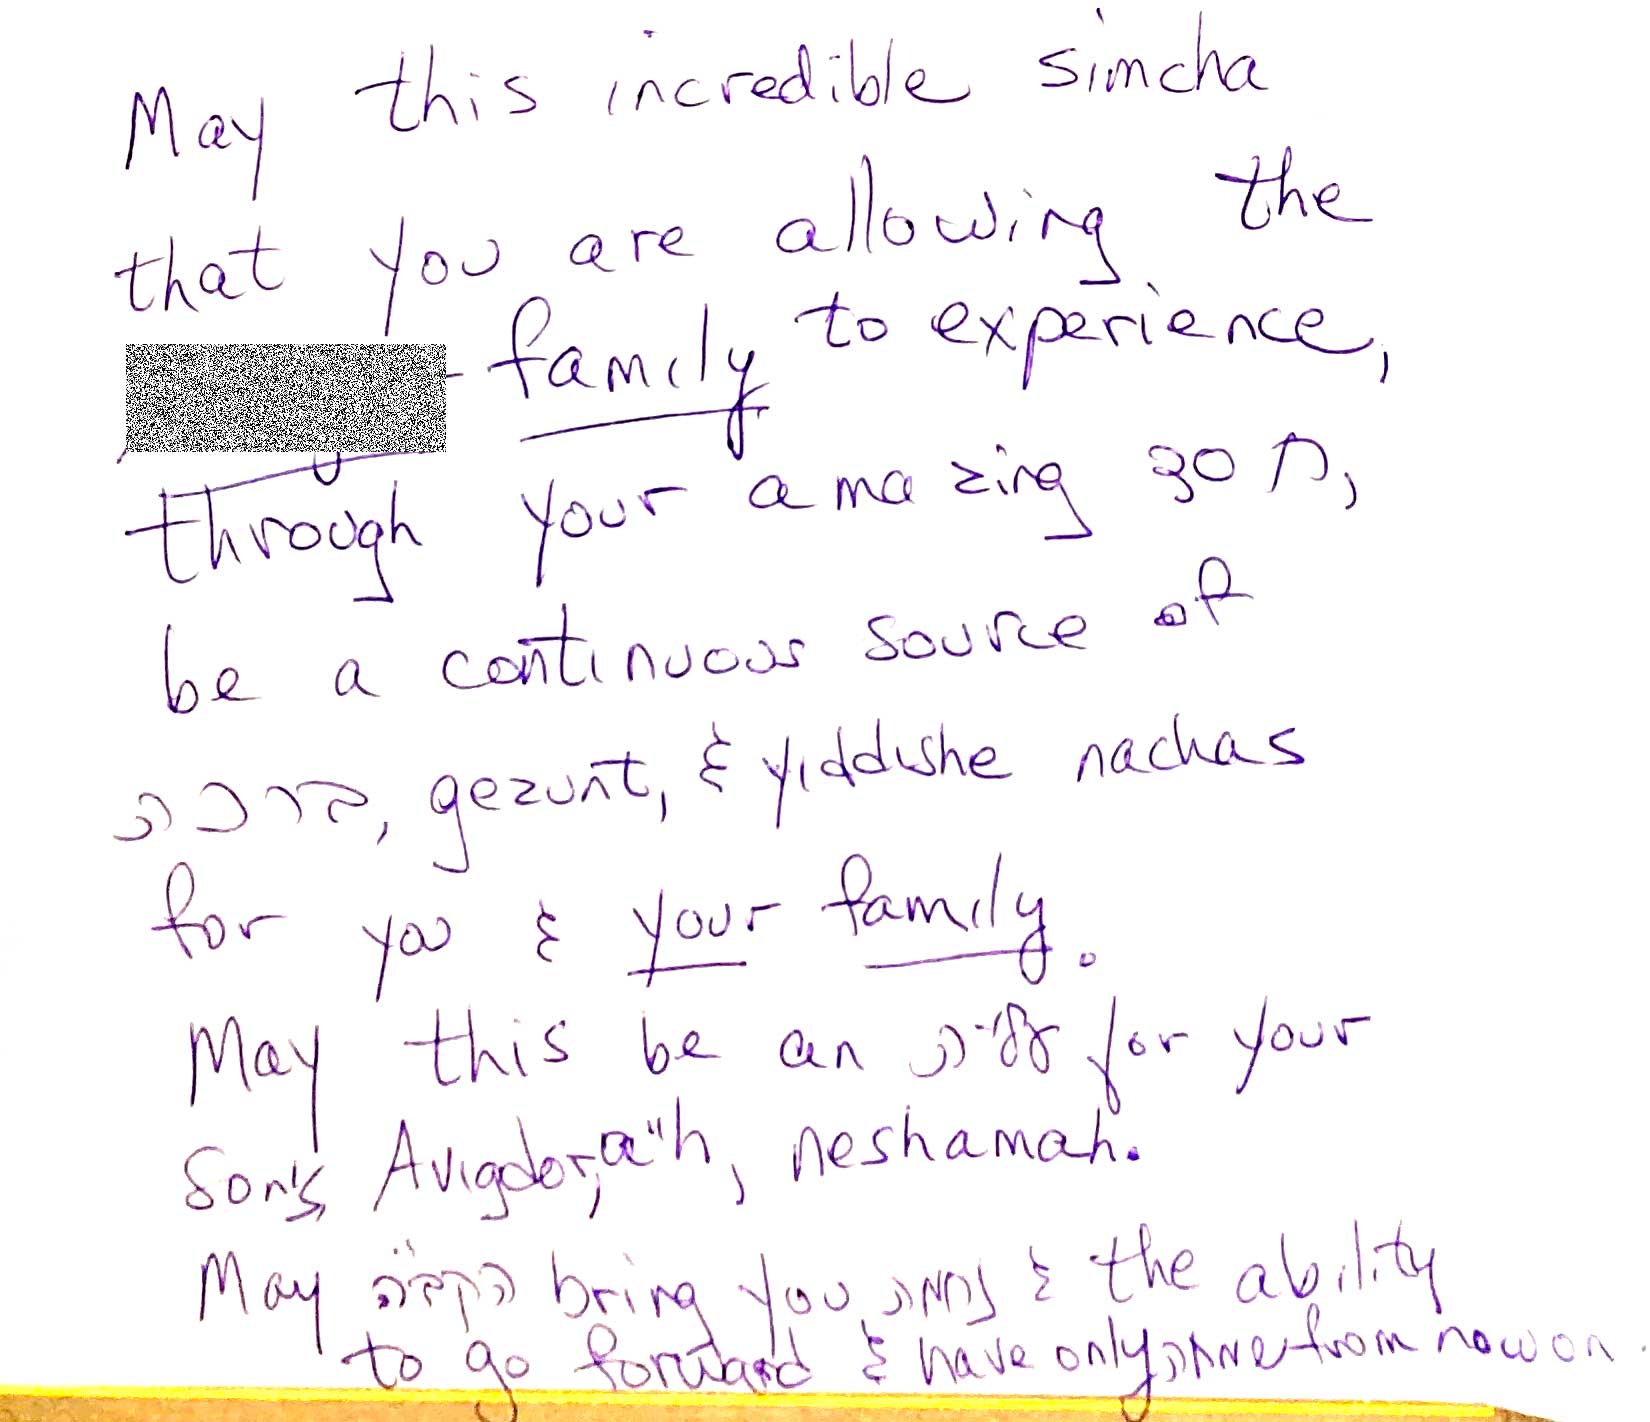 May this incredible simcha
that you are allowing the
family to experience,
through your amazing חסד,
be a continuous source of
ברכה, gezunt, & yiddishe nachas
for you & your family.
May this be an עליה for your
son's, Avigdor, a"h, neshamah.
May הקב"ה bring you נחמה & the ability
to go forward & have only שמחה from now on.